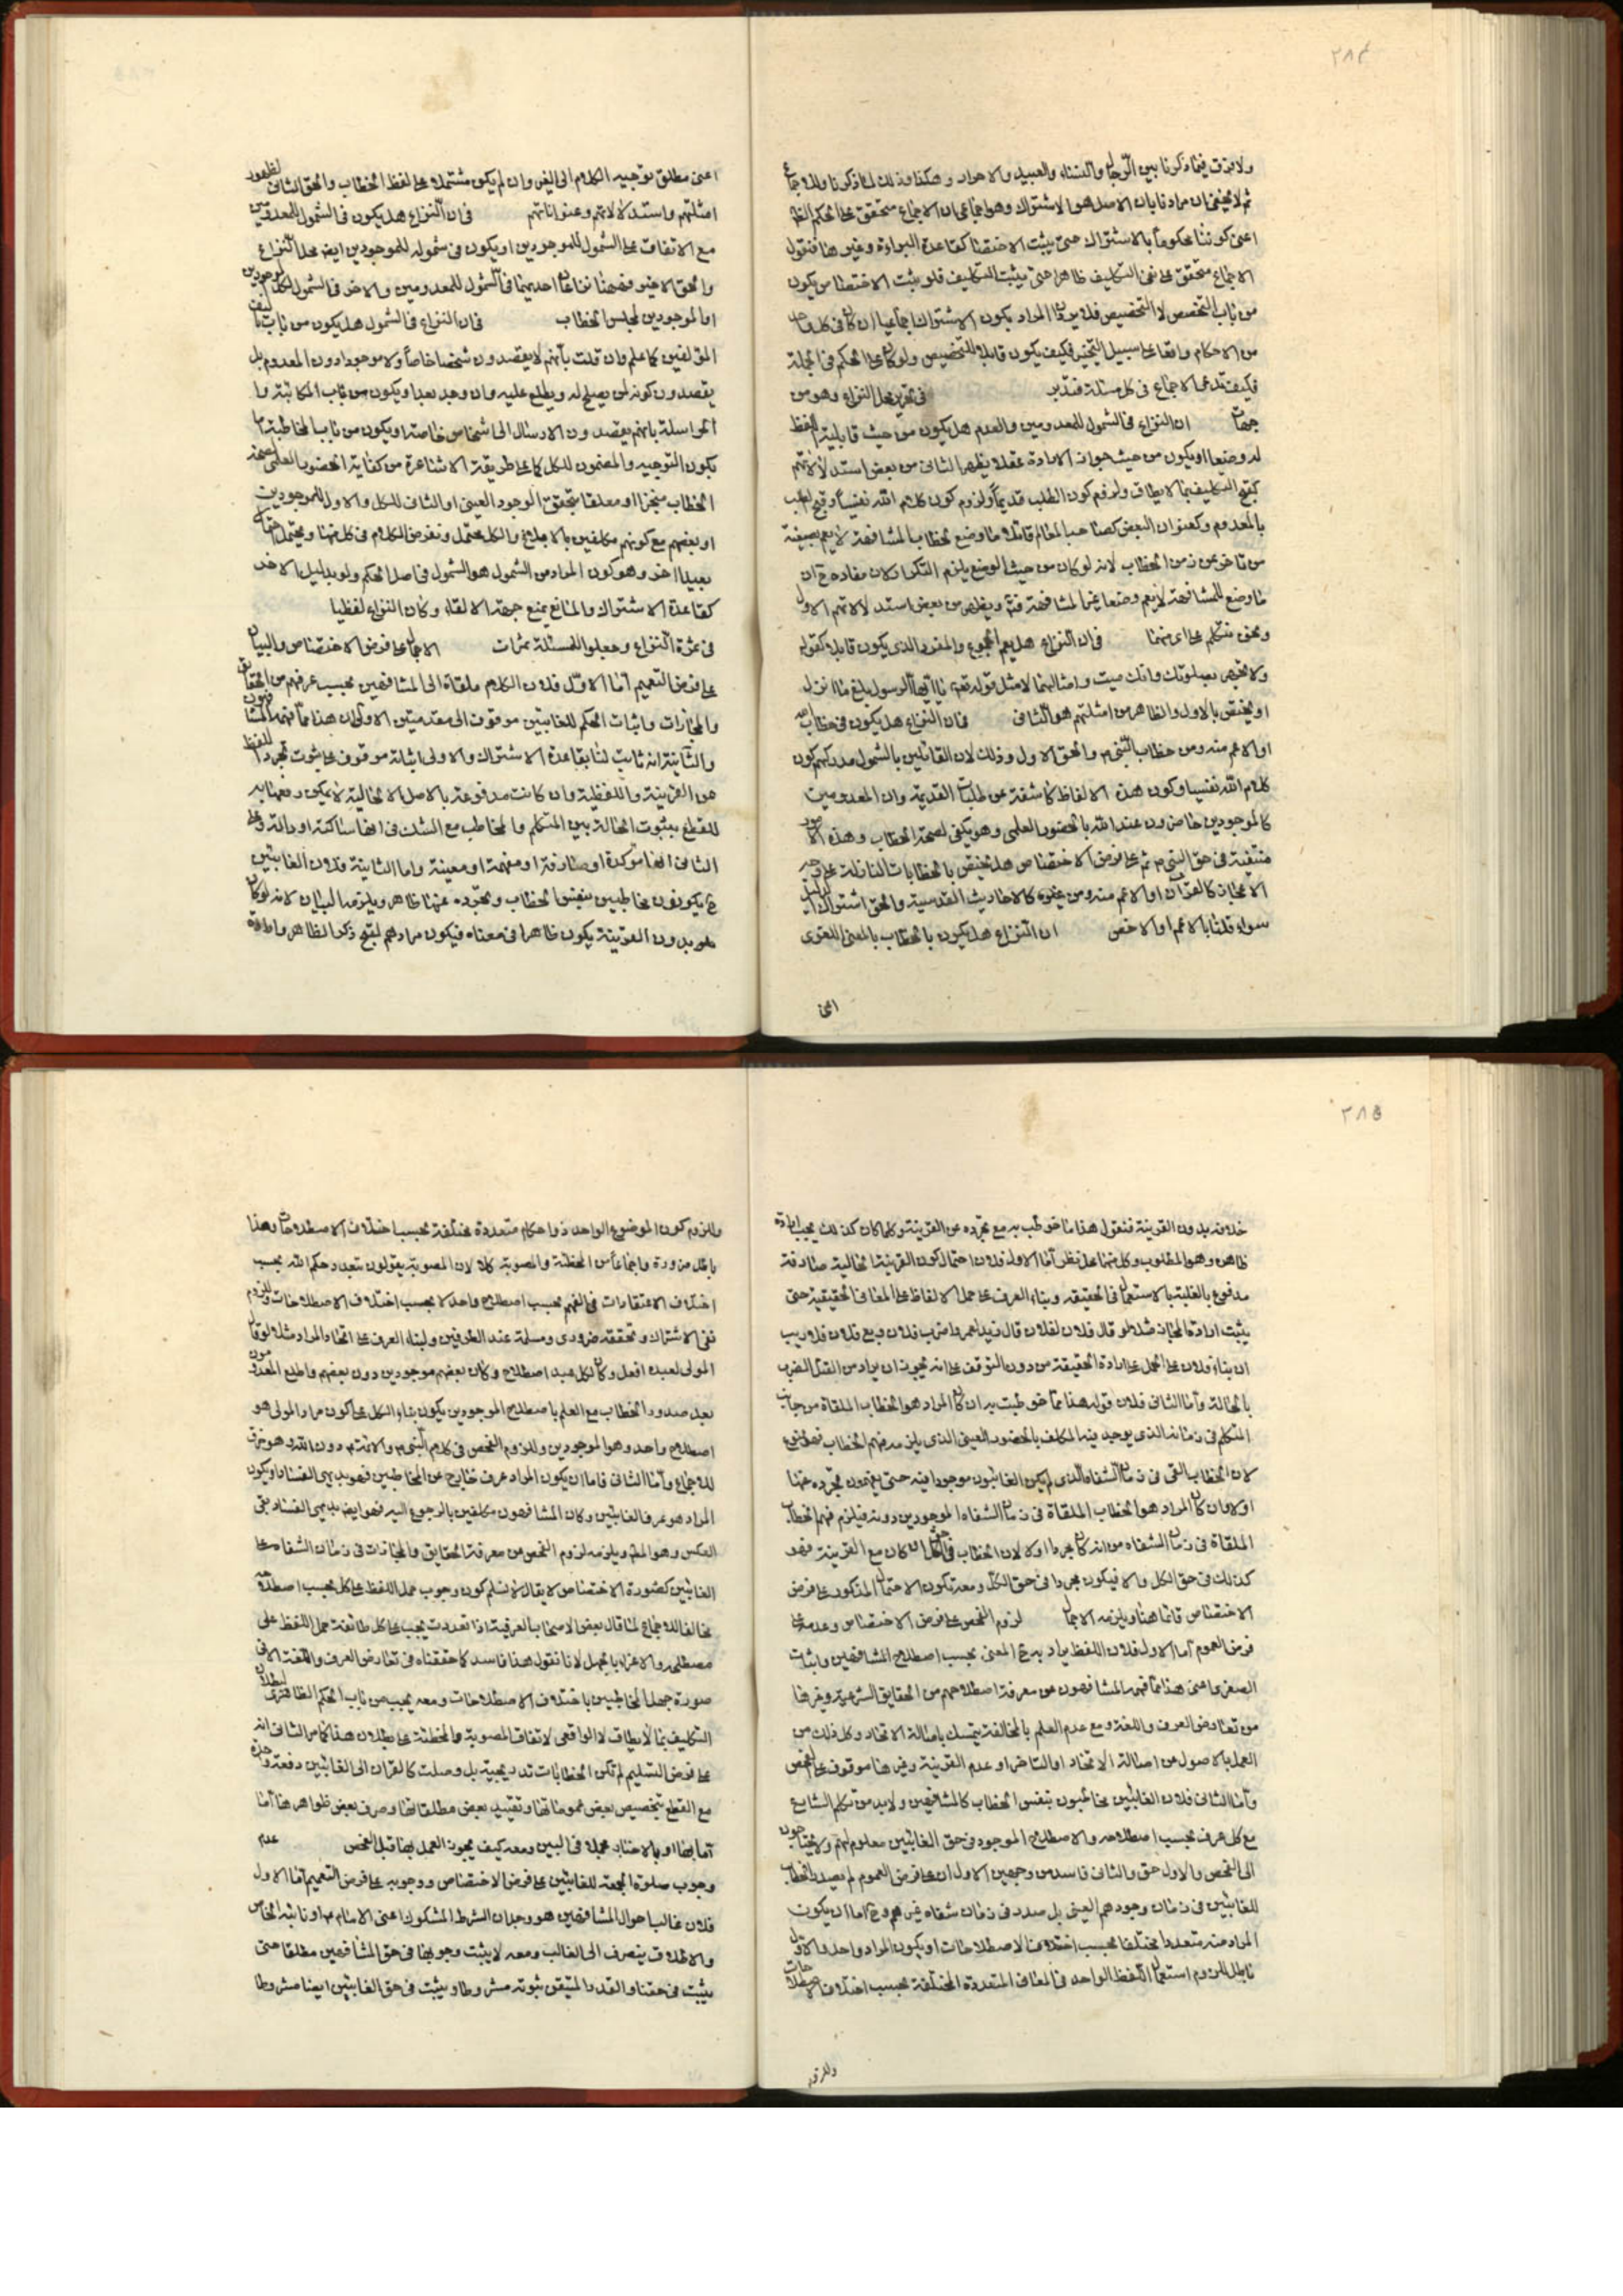 ٢٨٤
ولا فرق فيما ذكرنا بين الرجال والنساء والعبيد والاحرار وهكذا وذلك لما ذكرنا وللاجماع
ثم لا يخفى ان مرادنا بان الاصل هو الاشتراك وهو اجماعى ان الاجماع متحقق على الحكم الظا
اعنى كوننا محكوماً بالاشتراك حتى يثبت الاختصاص كقاعدة البراءة وغيرها فنقول
الاجماع متحقق على نفى التكليف ظاهرا حتى يثبت التكليف فلو يثبت الاختصاص يكون
من باب التخصص لا التخصيص فلا يرد ان المراد بكون الاشتراك اجماعيا ان كان فى كل واحد
من الاحكام واقعا على سبيل التنجيز فكيف يكون قابلا للتخصيص ولو كان على الحكم فى الجملة
فكيف تدعى الاجماع فى كل مسئلة فتدبر فى تحرير محل النزاع وهو من
جهات ان النزاع فى الشمول للمعدومين والعدم هل يكون من حيث قابلية اللفظ
له وضعا او يكون من حيث جواز الارادة عقلا يظهر الثانى من بعض استدلالاتهم
كقبح التكليف بما لا يطاق ولزوم كون الطلب قديماً ولزوم كون كلام الله نفسياً وقبح الطلب
بالمعدوم وكعنوان البعض كصاحب المعالم قائلا ما وضع لخطاب المشافهة لا يعم بصيغته
من تاخر عن زمن الخطاب لانه لو كان من حيث الوضع يلزم التكرار لان مفاده ح ان
ما وضع للمشافهة لا يعم وضعا غير المشافهة فتم ويظهر من بعض استدلالاتهم الاول
ونحن نتكلم على اى منهما فى ان النزاع هل يعم المجموع والمفرد الذى يكون قابلا كقوله
ولا تجهر بصلوتك وانك ميت وامثالهما لا مثل قوله تعالى يا ايها الرسول بلغ ما انزل
او يختص بالاول والظاهر من امثلتهم هو الثانى فى ان النزاع هل يكون فى خطاب الله
او الاعم منه ومن خطاب النبى م والحق الاول وذلك لان القائلين بالشمول مدركهم كون
كلام الله نفسيا وكون هذه الالفاظ كاشفة عن طلبات القديمة وان المعدومين
كالموجودين حاضرون عند الله بالحضور العلمى وهو يكفى لصحة الخطاب وهذه الامور
منتفية فى حق النبى م ثم على فرض الاختصاص هل يختص بالخطابات النازلة على وجه
الاعجاز كالقرآن او الاعم منه ومن غيره كالاحاديث القدسية والحق اشتراك الدليل
سواء قلنا بالاعم او الاخص ان النزاع هل يكون بالخطاب بالمعنى اللغوى
اعنى
اعنى مطلق توجيه الكلام الى الغير وان لم يكن مشتملا على لفظ الخطاب والحق الثانى لظهور
امثلتهم واستدلالاتهم وعنواناتهم فى ان النزاع هل يكون فى الشمول للمعدومين
مع الاتفاق على الشمول للموجودين او يكون فى شموله للموجودين ايضا محل النزاع
والحق الاخير فههنا نزاعان احدهما فى الشمول للمعدومين والاخر فى الشمول لكل الموجودين
او الموجودين لمجلس الخطاب فى ان النزاع فى الشمول هل يكون من باب تاليف
المؤلفين كما علم وان قلت بأنهم لا يقصدون شخصا خاصاً ولا موجودا دون المعدوم بل
يقصدون كونه لمن يصلح له ويطلع عليه وان وجد بعدا ويكون من باب المكاتبة وا
المراسلة بانهم يقصدون الارسال الى اشخاص خاصة او يكون من باب المخاطبة بان
يكون التوجيه والمضمون للكل كما على طريقة الاشاعرة من كفاية الحضور العلمى لصحة
الخطاب منجزا او معلقا بتحقق الوجود العينى او الثانى للكل والاول للموجودين
او بعضهم مع كونهم مكلفين بالابلاغ والكل محتمل ونفرض الكلام فى كل منها ويحتمل احتمالا
بعيدا اخر وهو كون المراد من الشمول هو الشمول فى اصل الحكم ولو بدليل الاخر
كقاعدة الاشتراك والمانع يمنع جهة الالقاء وكان النزاع لفظيا
فى ثمرة النزاع وجعلوا للمسئلة ثمرات الاجمال على فرض الاختصاص والبيان
على فرض التعميم اما الاول فلان الكلام ملقاة الى المشافهين بحسب عرفهم من الحقائق
والمجازات واثبات الحكم للغائبين موقوف الى مقدمتين الاولى ان هذا ما فهمه المشافهون
والثانية انه ثابت لنا بقاعدة الاشتراك والاولى اثباته موقوف على ثبوت تجرد اللفظ
من القرينة واللفظية وان كانت مدفوعة بالاصل الا الحالية لا يمكن دفعها به
للقطع بثبوت الحالة بين المتكلم والمخاطب مع الشك فى انها ساكتة او دالة وعلى
الثانى انها مؤكدة او صارفة او مفهمة او معينة واما الثانية فلان الغائبين
ح يكونون مخاطبين بنفس الخطاب وتجرده عنها ظاهر ويلزمه البيان لانه لو كان
بدون القرينة يكون ظاهرا فى معناه فيكون مرادهم لقبح ذكر الظاهر وارادة
٢٨٥
خلافه بدون القرينة فنقول هذا ما خوطب به مع تجرده عن القرينة وكلما كان كذلك يجب ارادة
ظاهره وهو المطلوب وكل منهما محل نظر اما الاول فلان احتمال كون القرينة الحالية صادفة
مدفوع بالغلبة بالاستعمال فى الحقيقه وبناء العرف على حمل الالفاظ على المعانى الحقيقية حتى
يثبت ارادة المجاز مثلا لو قال فلان لفلان قال زيد لعمرو اضرب فلان وبع فلان فلا ريب
ان بناء فلان على الحمل على ارادة الحقيقة من دون التوقف على انه يجوز ان يراد من القتل الضرب
بالحالة واما الثانى فلان قوله هذا مما خوطبت به ان كان المراد هو الخطاب الملقاة من جانب
المتكلم فى زمانه الذى يوجد فيه المكلف بالحضور العينى الذى يلزمه فهم الخطاب فهو ممنوع
لان الخطاب القى فى زمان الشفاه الذى لم يكن الغائبون موجودا فيه حتى يفهمون تجرده عنها
اولا وان كان المراد هو الخطاب الملقاة فى زمان الشفاه الموجودين دونه فيلزم فهم الخطاب
الملقاة فى زمان الشفاه من انه كان مجردا او لا لان الخطاب فى حق الكل ان كان مع القرينة فهو
كذلك فى حق الكل والا فيكون مجردا فى حق الكل ومعه يكون الاحتمال المذكور على فرض
الاختصاص قائما هنا ويلزمه الاجمال لزوم الفحص على فرض الاختصاص وعدمه على
فرض العموم اما الاول فلان اللفظ يراد به ح المعنى بحسب اصطلاح المشافهين واثبات
الصغرى اعنى هذا مما فهمه المشافهون من معرفة اصطلاحهم من الحقايق الشرعية وغيرها
من تعارض العرف واللغة ومع عدم العلم بالمخالفة يتمسك باصالة الاتحاد وكل ذلك من
العمل بالاصول من اصالة الاتحاد او التاخر او عدم القرينة وغيرها موقوف على الفحص
واما الثانى فلان الغائبين مخاطبون بنفس الخطاب كالمشافهين ولا بد من تكلم الشارع
مع كل عرف بحسب اصطلاحه والاصطلاح الموجود فى حق الغائبين معلوم لهم ولا يحتاجون
الى الفحص والاول حق والثانى فاسد من وجهين الاول ان على فرض العموم لم يصدر الخطاب
للغائبين فى زمان وجودهم العينى بل صدر فى زمان شفاه غيرهم وح اما ان يكون
المراد منه متعددا مختلفا بحسب اختلاف الاصطلاحات او يكون المراد واحد والاول
باطل للزوم استعمال اللفظ الواحد فى المعانى المتعددة المختلفة بحسب اختلاف الاصطلاحات
وللزوم
وللزوم كون الموضوع الواحد ذو احكام متعددة مختلفة بحسب اختلاف الاصطلاحات وهذا
باطل ضرورة واجماعاً من المخطئة والمصوبة كلا لان المصوبة يقولون بتعدد حكم الله بحسب
اختلاف الاعتقادات فى الفهم بحسب اصطلاح واحد لا بحسب اختلاف الاصطلاحات وللزوم
نفى الاشتراك وتحققه ضرورى ومسلمة عند الطرفين ولبناء العرف على اتحاد المراد مثلا لو قال
المولى لعبده افعل وكان لكل عبد اصطلاح وكان بعضهم موجودين دون بعضهم واطلع المعدومون
بعد صدور الخطاب مع العلم باصطلاح الموجودين يكون بناء الكل على كون مراد المولى هو
اصطلاح واحد وهو الموجودين وللزوم الفحص فى كلام النبى م والائمة م دون الله وهو خرق
للاجماع واما الثانى فاما ان يكون المراد عرف خارج عن المخاطبين فهو بديهى الفساد او يكون
المراد هو عرف الغائبين وكان المشافهون مكلفين بالرجوع اليه فهو ايضا بديهى الفساد بقى
العكس وهو الحق ويلزمه لزوم الفحص من معرفة الحقايق والمجازات فى زمان الشفاه على
الغائبين كصورة الاختصاص لا يقال لا نسلم كون وجوب حمل اللفظ على كل بحسب اصطلاحه
مخالفا للاجماع لما قال بعض الاصحاب العرفية اذا تعددت يجب على كل طائفة حمل اللفظ على
مصطلحه والاغراء بالجهل لانا نقول هذا فاسد كما حققناه فى تعارض العرف واللغة الا فى
صورة جهل المخاطبين باختلاف الاصطلاحات ومعه يجب من باب الحكم الظاهرى لبطلان
التكليف بما لا يطاق لا الواقعى لاتفاق المصوبة والمخطئة على بطلان هذا كما مر الثانى انه
على فرض التسليم لم تكن الخطابات تدريجية بل وصلت كالقران الى الغائبين دفعة واحدة
مع القطع بتخصيص بعض عموماتها وتقييد بعض مطلقاتها وصرف بعض ظواهرها اما
اما بها او بالاخبار مجملا فى البين ومعه كيف يجوز العمل بها قبل الفحص عدم
وجوب صلوة الجمعة للغائبين على فرض الاختصاص ووجوبه على فرض التعميم اما الاول
فلان غالب احوال المشافهين هو وجدان الشرط المشكوك اعنى الامام م او نائبه الخاص
والاطلاق ينصرف الى الغالب ومعه لا يثبت وجوبها فى حق المشافهين مطلقا حتى
يثبت فى حقنا والقدر المتيقن ثبوته مشروطا ويثبت فى حق الغائبين ايضا مشروطا